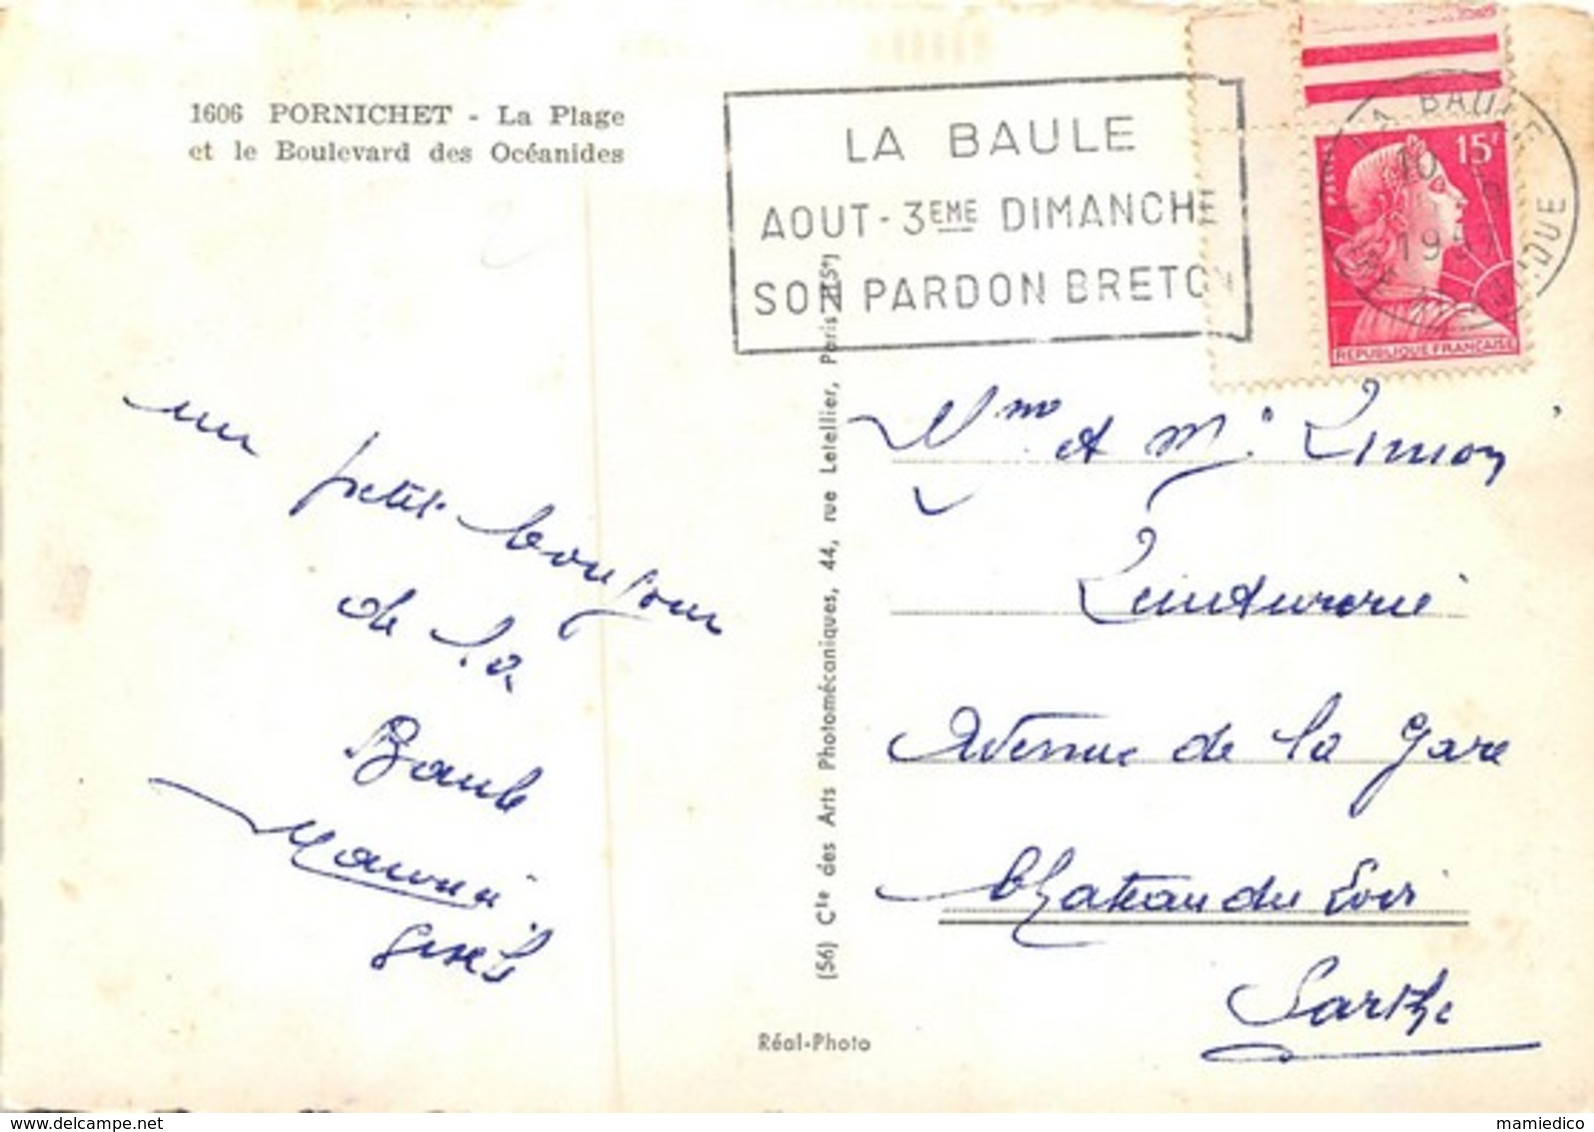 1606 PORNICHET - La Plage
et le Boulevard des Océanides
LA BAULE
AOUT - 3EME DIMANCHE
SON PARDON BRETON
15F
POSTES
LA BAULE
10
1957
REPUBLIQUE FRANÇAISE
un
petit bonjour
de la
Baule
Maurice
Gisèle
(56) Cie des Arts Photomécaniques, 44, rue Letellier, Paris (15e)
Réal-Photo
Mme et Mr. Limon
Teinturerie
Avenue de la Gare
Chateau du Loir
Sarthe
www.delcampe.net
mamiedico